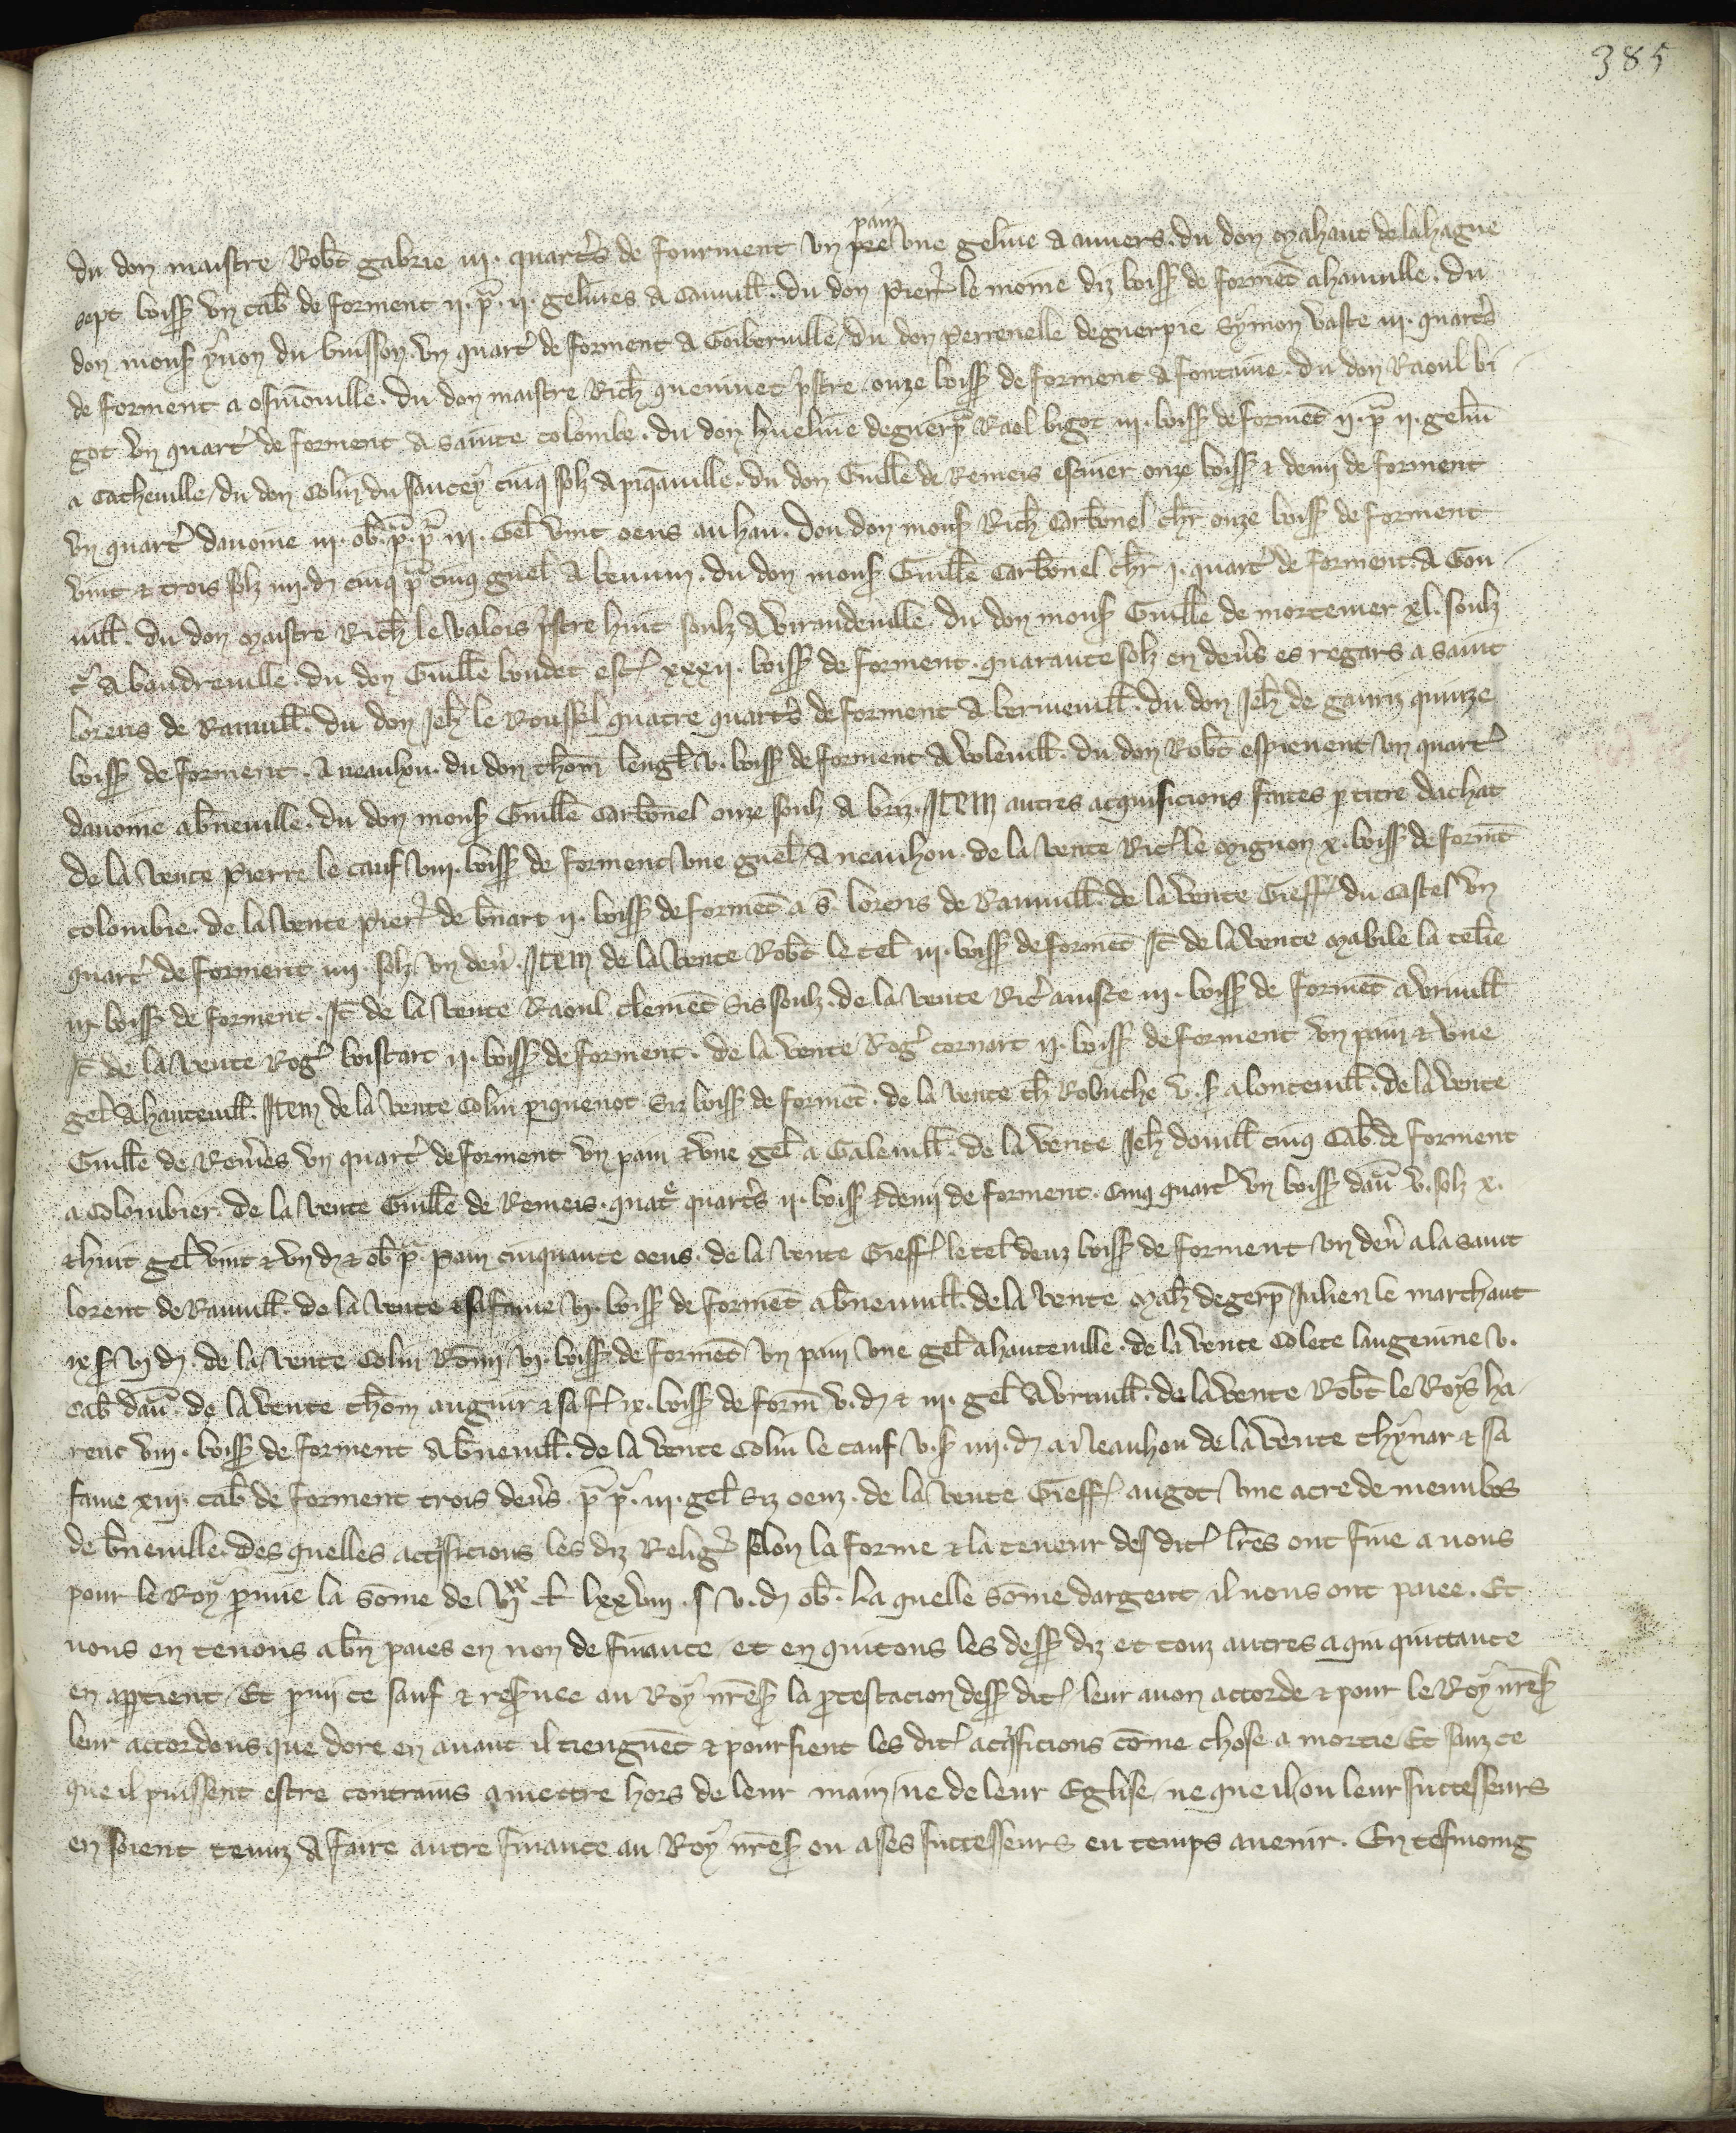 385
pain
du don maistre Rob̄t gabrie .iii. quart's de fourment vn pre vne geline a auuers. du don Mahaut de la hague
sept boiss' vn cab' de forment .ii. p̄. ii. gelines a Canuill'. du don Pierr' le moine diz boiss' de formēt a hainuille. du
don mons' yuon du buisson. vn quart' de forment a Goiberuille. du don perrenelle deguerpie symon vaste .iii. quart's
de forment a osmōuille. du don maistre Rich' queniuet p'stre onze boiss' de forment a fontaine. du don Raoul bi
got vn quart' de forment a sainte colombe. du don hueline deguerp' Raol bigot .iii. boiss' de formēt .ii. p̄ .ii. gelin'
a Catheuille. du don Colin du saucey cinq solz a piq̄auuille. du don Guill'e de Remeis escuier onze boiss' & demi de forment
vn quart' dauoine .iii. ob. p̄. p̄ .iii. Gel' vint oeus au hau. dou don mons' Rich' Carbōnel ch'r onze boiss' de forment
vint & trois solz .iiii. d' cinq p̄ cinq guel' a beuum. du don mons' Guill'e Carbonel ch'r .i. quart' de forment. a Gon
uill'. du don Maistre Rich' le valois p'stre huit soulz a virandeuille. du don mons' Guill'e de mortemer xl. soulz
t' a baudreuille. du don Guill'e boudet esc' xxxii. boiss' de forment. quarante solz en den's es regars a saint
lorens de Rauuill'. du don Jeh' le Roussel quatre quart's de forment a berneuill'. du don Jeh' de gaurn quinze
boiss' de forment. a neauhou. du don thom' lengl' .v. boiss' de forment a voleuill'. du don Rob̄t espieuent vn quart'
dauoine a b'neuille. du don mons' Guill'e Carbōnel onze soulz a briz. Item autres acquisicions faites p titre dachat
de la vente Pierre le cauf viii. boiss' de forment vne guel' a neauhou. de la vente Ric' le Mignon x. boiss' de formēt
colombie. de la vente pierr' de b'nart .ii. boiss' de formēt a s̄. lorens de Rauuill'. de la vente Gieff' du Castel vn
quart' de forment .iiii. solz vn den'. Item de la vente Rob̄t le tel' .iii. boiss' de formēt It' de la vente Mabile la tel'ie
.iii. boiss' de forment. It' de la vente Raoul clemēt sis soulz. de la vente Ric' auisce .iii. boiss' de formēt a vruill'
It' de la vente Rog' boistart .ii. boiss' de forment. de la vente Rog' cornart .ii. boiss' de forment vn pain & vne
gel' a hauteuill'. Item de la vente Colin piquenot Siz boiss' de formēt. de la vente th' Robuche v. s' a lonteuill'. de la vente
Guill'e de Rem'es vn quart' de forment vn pain & vne gel' a Galeuill'. de la vente Jeh' douill' cinq Cab' de forment
a Colombier. de la vente Guill'e de Remeis. quat' quart's .ii. boiss' & demi de forment. Cinq quart' vn boiss' dau' v. solz x.
& huit gel' vint & vn d' & ob' p̄. pain cinquante oeus. de la vente Gieff' le tel' deuz boiss' de forment vn den' a la saint
lorent de Rauuill'. de la vente & sa fame vi. boiss' de formēt a b'neuuill'. de la vente Mah' degerp' Julien le marchaut
ix s' vi d'. de la vente Colin Rōmi vi. boiss' de formēt vn pain vne gel' a hauteuille. de la vente Colete laugeuine v.
cab' dau'. de la vente thom' auguir & sa f' ix. boiss' de form' v. d' & .iii. gel' a vrauill'. de la vente Rob̄t le Roys ha
renc viii. boiss' de forment a b'neuill'. de la vente Colin le cauf v. s' iiii. d' a Neauhou de la vente thynar & sa
fame xiii. cab' de forment trois den's. p̄ p̄. iii. gel' siz oenz. de la vente Gieff' augot vne acre de menubos
de b'neuille. des quelles acq'sicions les diz Relig' selon la forme & la teneur des dit' lr̄es ont fine a nous
pour le Roy p mie la sōme de vi^xx. l' lxxviii. s v. d' ob. La quelle sōme dargent il nous ont paiee. Et
nous en tenons a b'n paies en non de finance et en quitons les dess' diz et touz autres a qui quittance
en app'tient. Et p mi ce sauf & res'uee au Roy nr̄e s' la p'testacion dess' dit' leur auon accorde & pour le Roy nr̄e s'
leur accordons que dore en auant il tienguēt & poursient les dit' acq'sicions cōme chose a mortie Et sanz ce
que il puissent estre contrains a mettre hors de leur main ne de leur Eglise ne que il ou leur successeurs
en soient tenuz a faire autre finance au Roy nr̄e s' ou a ses successeurs eu temps auenir. En tesmoing